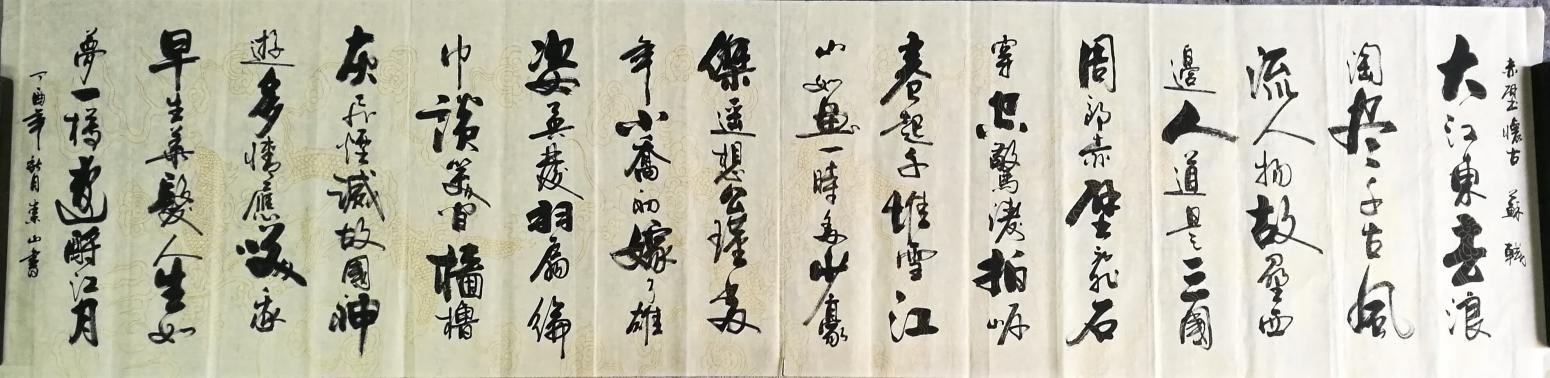 赤壁懷古 蘇軾
大江東去浪
淘盡千古風
流人物故壘西
邊人道是三國
周郎赤壁亂石
穿空驚濤拍岸
卷起千堆雪江
山如畫一時多少豪
傑遙想公瑾當
年小喬初嫁了雄
姿英發羽扇綸
巾談笑間檣櫓
灰飛煙滅故國神
遊多情應笑我
早生華髮人生如
夢一樽還酹江月
丁酉年秋月 山書